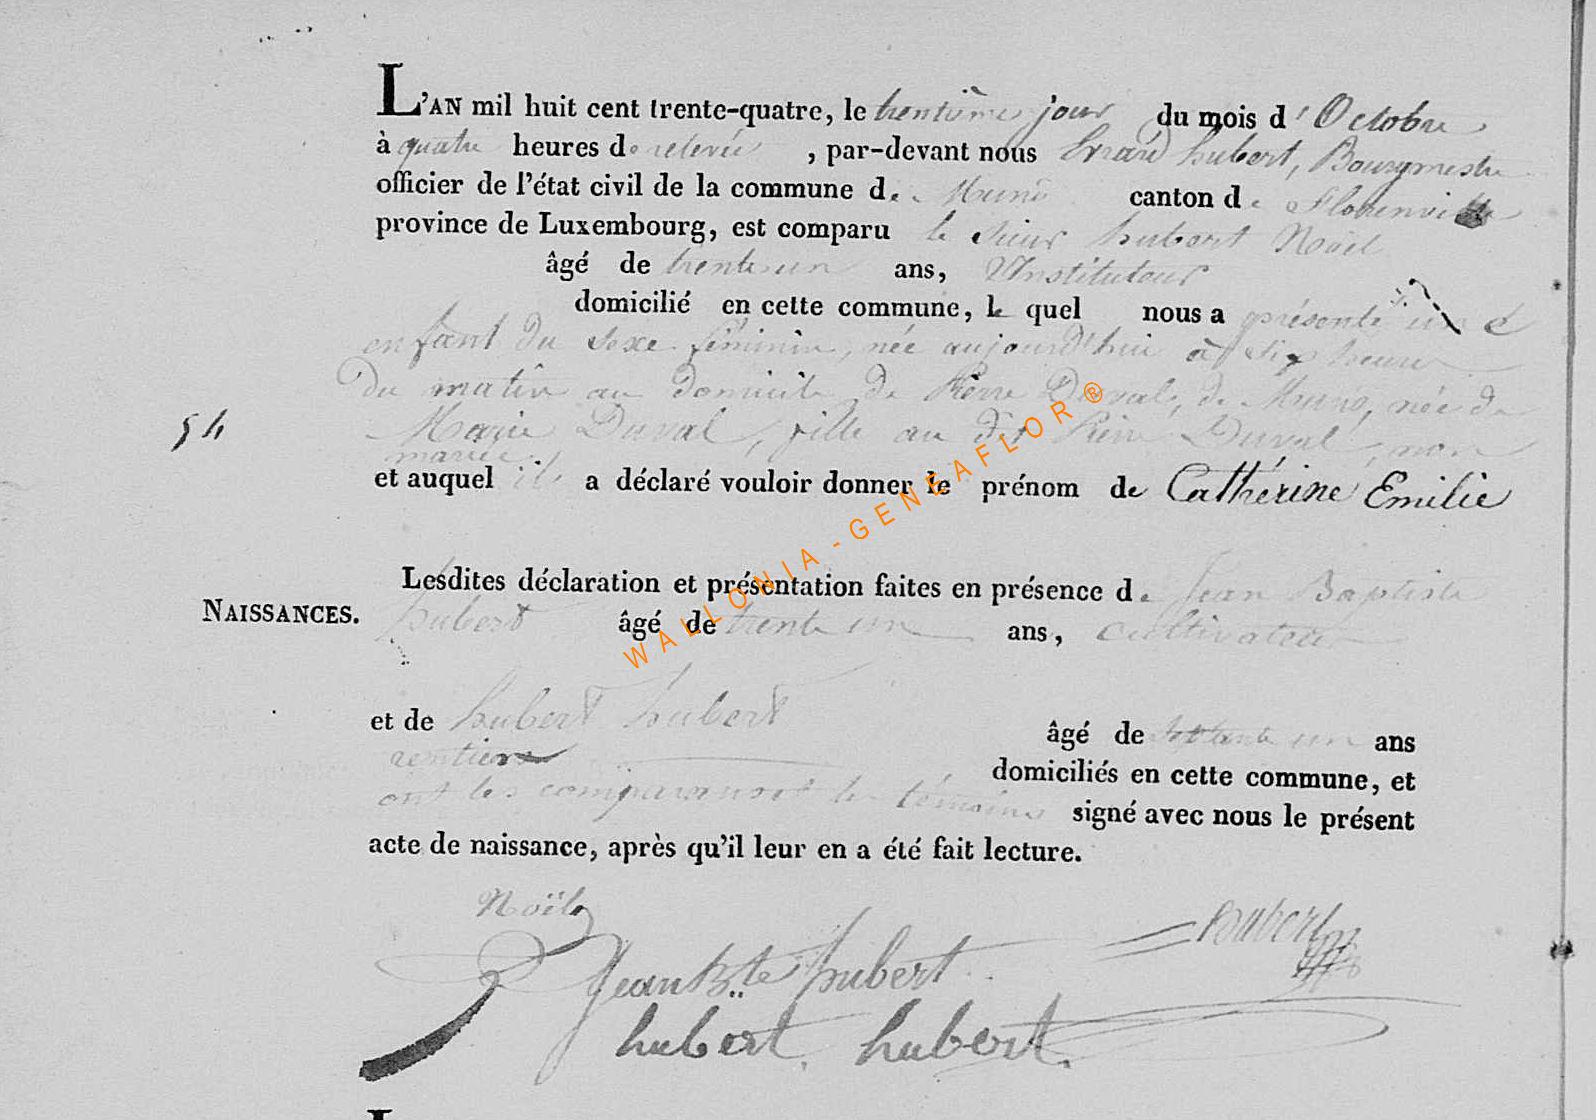 L'AN mil huit cent trente-quatre, le trentième jour du mois d'Octobre
à quatre heures de relevée , par-devant nous Erard hubert, Bourgmestre
officier de l'état civil de la commune de Muno canton de Florenville
province de Luxembourg, est comparu le sieur hubert Noël
âgé de trente un ans, Instituteur
domicilié en cette commune, le quel nous a présenté un
enfant du sexe féminin, née aujourd'hui à six heures
du matin au domicile de Pierre Duval, de Muno, née de
54
Marie Duval, fille au dit Pierre Duval, non
mariée
et auquel il a déclaré vouloir donner le prénom de Cathérine Emilie
Lesdites déclaration et présentation faites en présence de Jean Baptiste
NAISSANCES.
hubert âgé de trente un ans, cultivateur
et de hubert hubert âgé de septante un ans
rentier domiciliés en cette commune, et
ont les comparans et les témoins signé avec nous le présent
acte de naissance, après qu'il leur en a été fait lecture.
Noël
hubert
Jean Bte hubert
hubert hubert.
WALLONIA-GENEAFLOR®